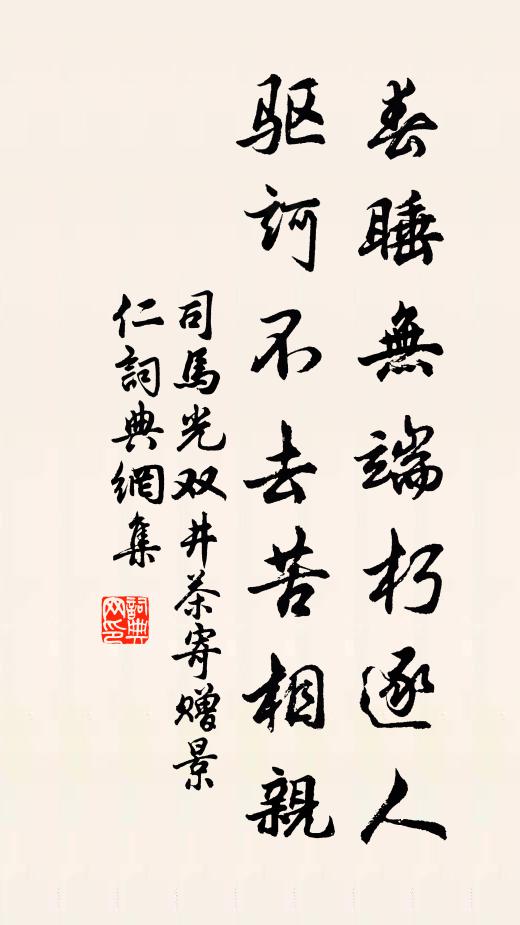 春睡無端朽逐人
驱訶不去苦相親
司馬光双井茶寄赠景
仁詞典網集
詞典
网印